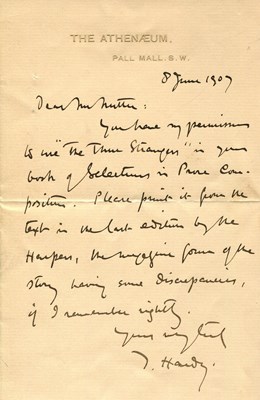 THE ATHENÆUM,
PALL MALL. S.W.
8 June 1907
Dear Mr Nutter:
You have my permission
to use "The Three Strangers" in your
book of Selections in Prose Com-
position. Please print it from the
text in the last edition by the
Harpers, the magazine form of the
story having some discrepancies,
if I remember rightly.
Yours very truly
T. Hardy.